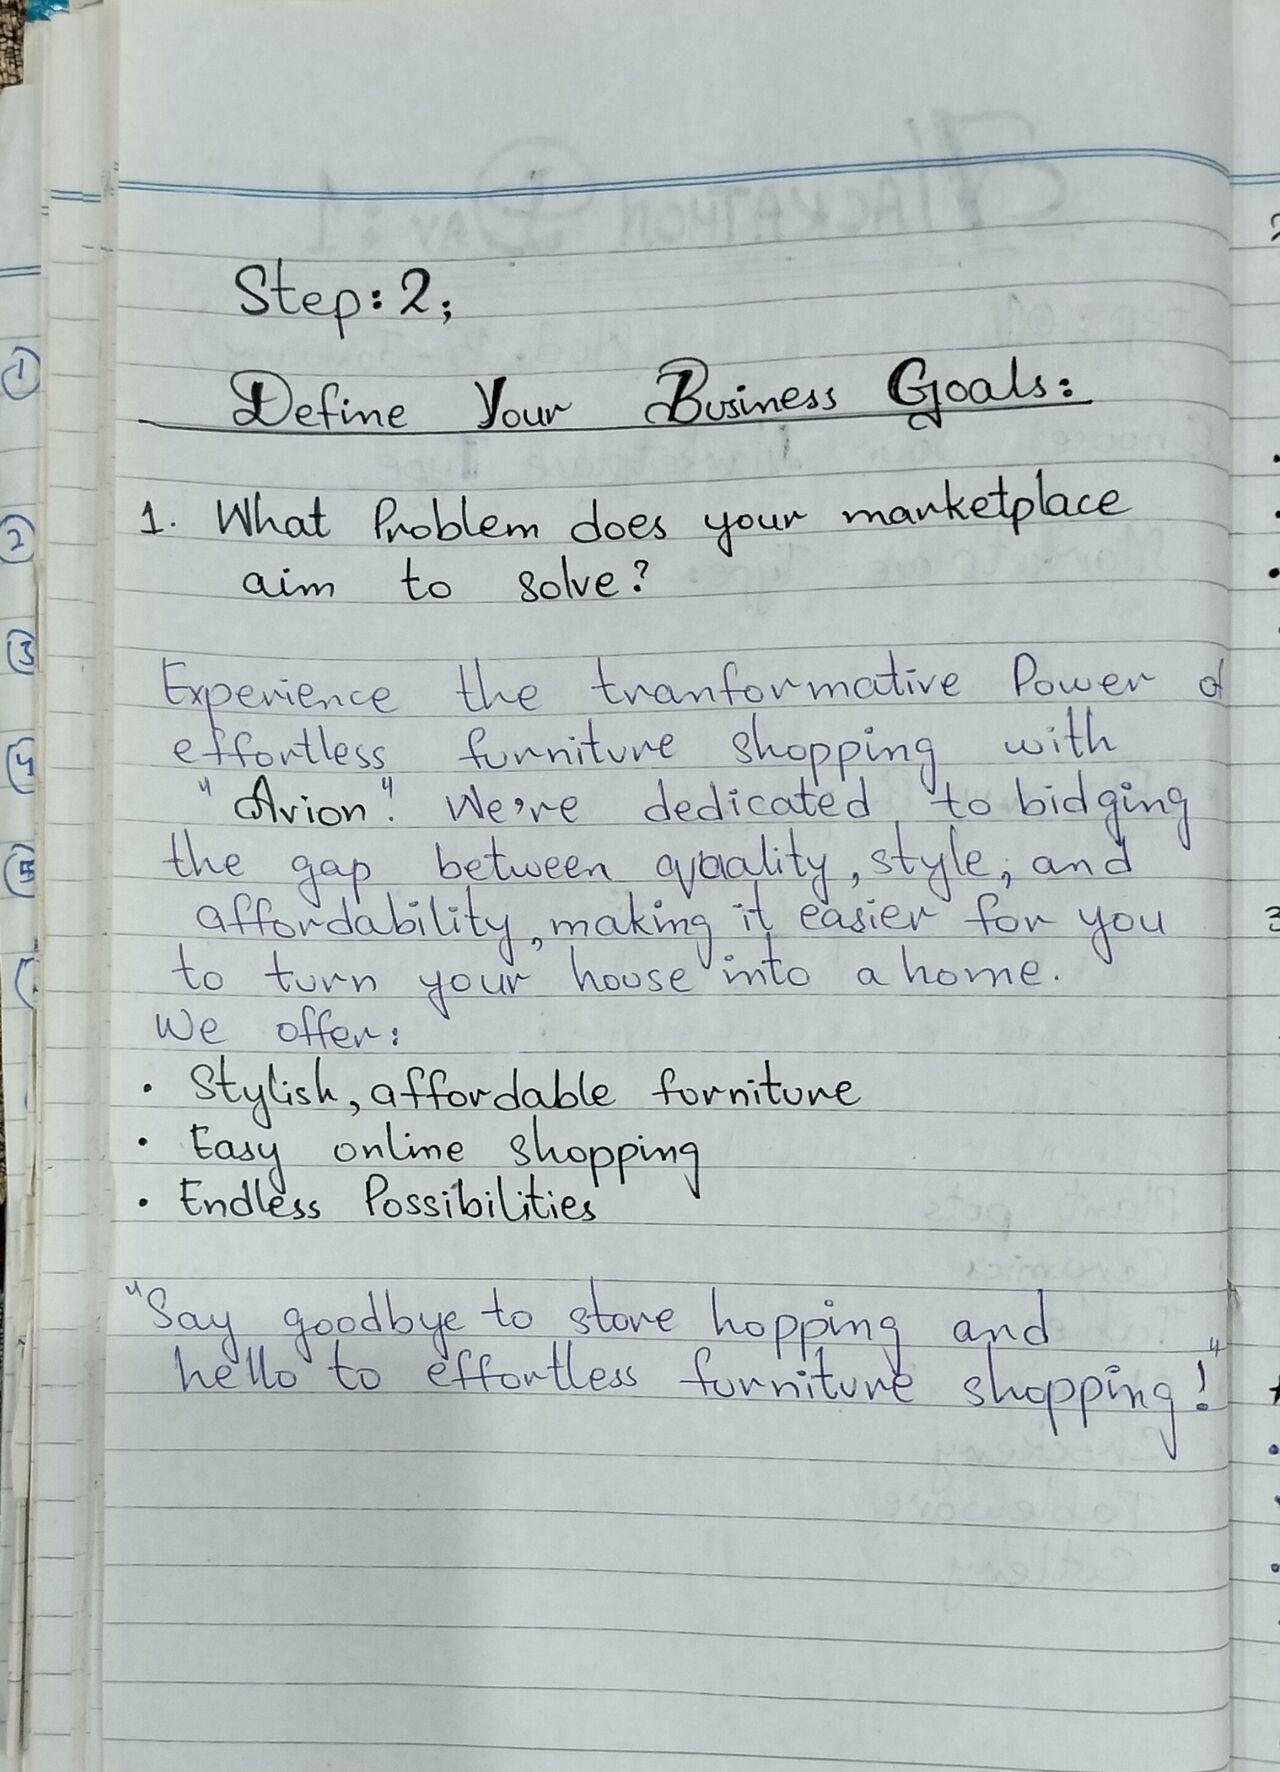 Step: 2;
Define Your Business Goals:
1. What Problem does your marketplace
aim to solve?
Experience the tranformative Power of
effortless furniture shopping with
"Avion". We're dedicated to bidging
the gap between quality, style, and
affordability, making it easier for you
to turn your house into a home.
We offer:
• Stylish, affordable furniture
• Easy online shopping
• Endless Possibilities
"Say goodbye to store hopping and
hello to effortless furniture shopping!"
1
2
3
4
5